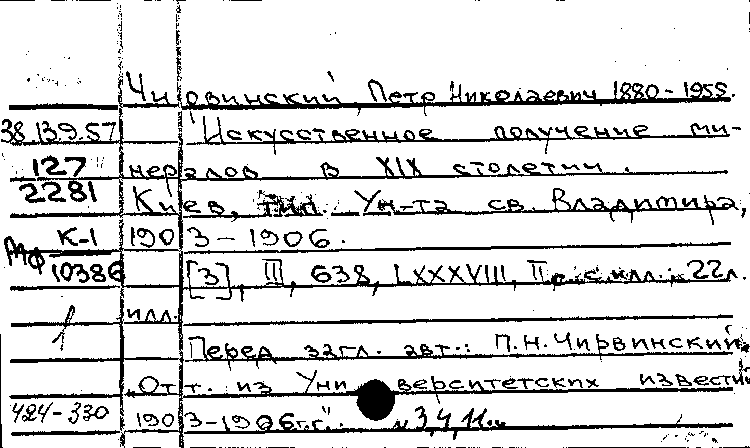 Чирвинский, Петр Николаевич, 1880-1955.
38.139.57 Искусственное получение ми-
127 нералов в XIX столетии.
2281 Киев, тип. Ун-та св. Владимира,
К-1 1903-1906.
МФ 10386 [3], III, 638, LXXXVIII, II с. с илл.; 22л.
1 илл.
Перед загл. авт.: П.Н.Чирвинский.
„Отт. из Университетских известий
424-330 1903-1906гг." „3,4,11"